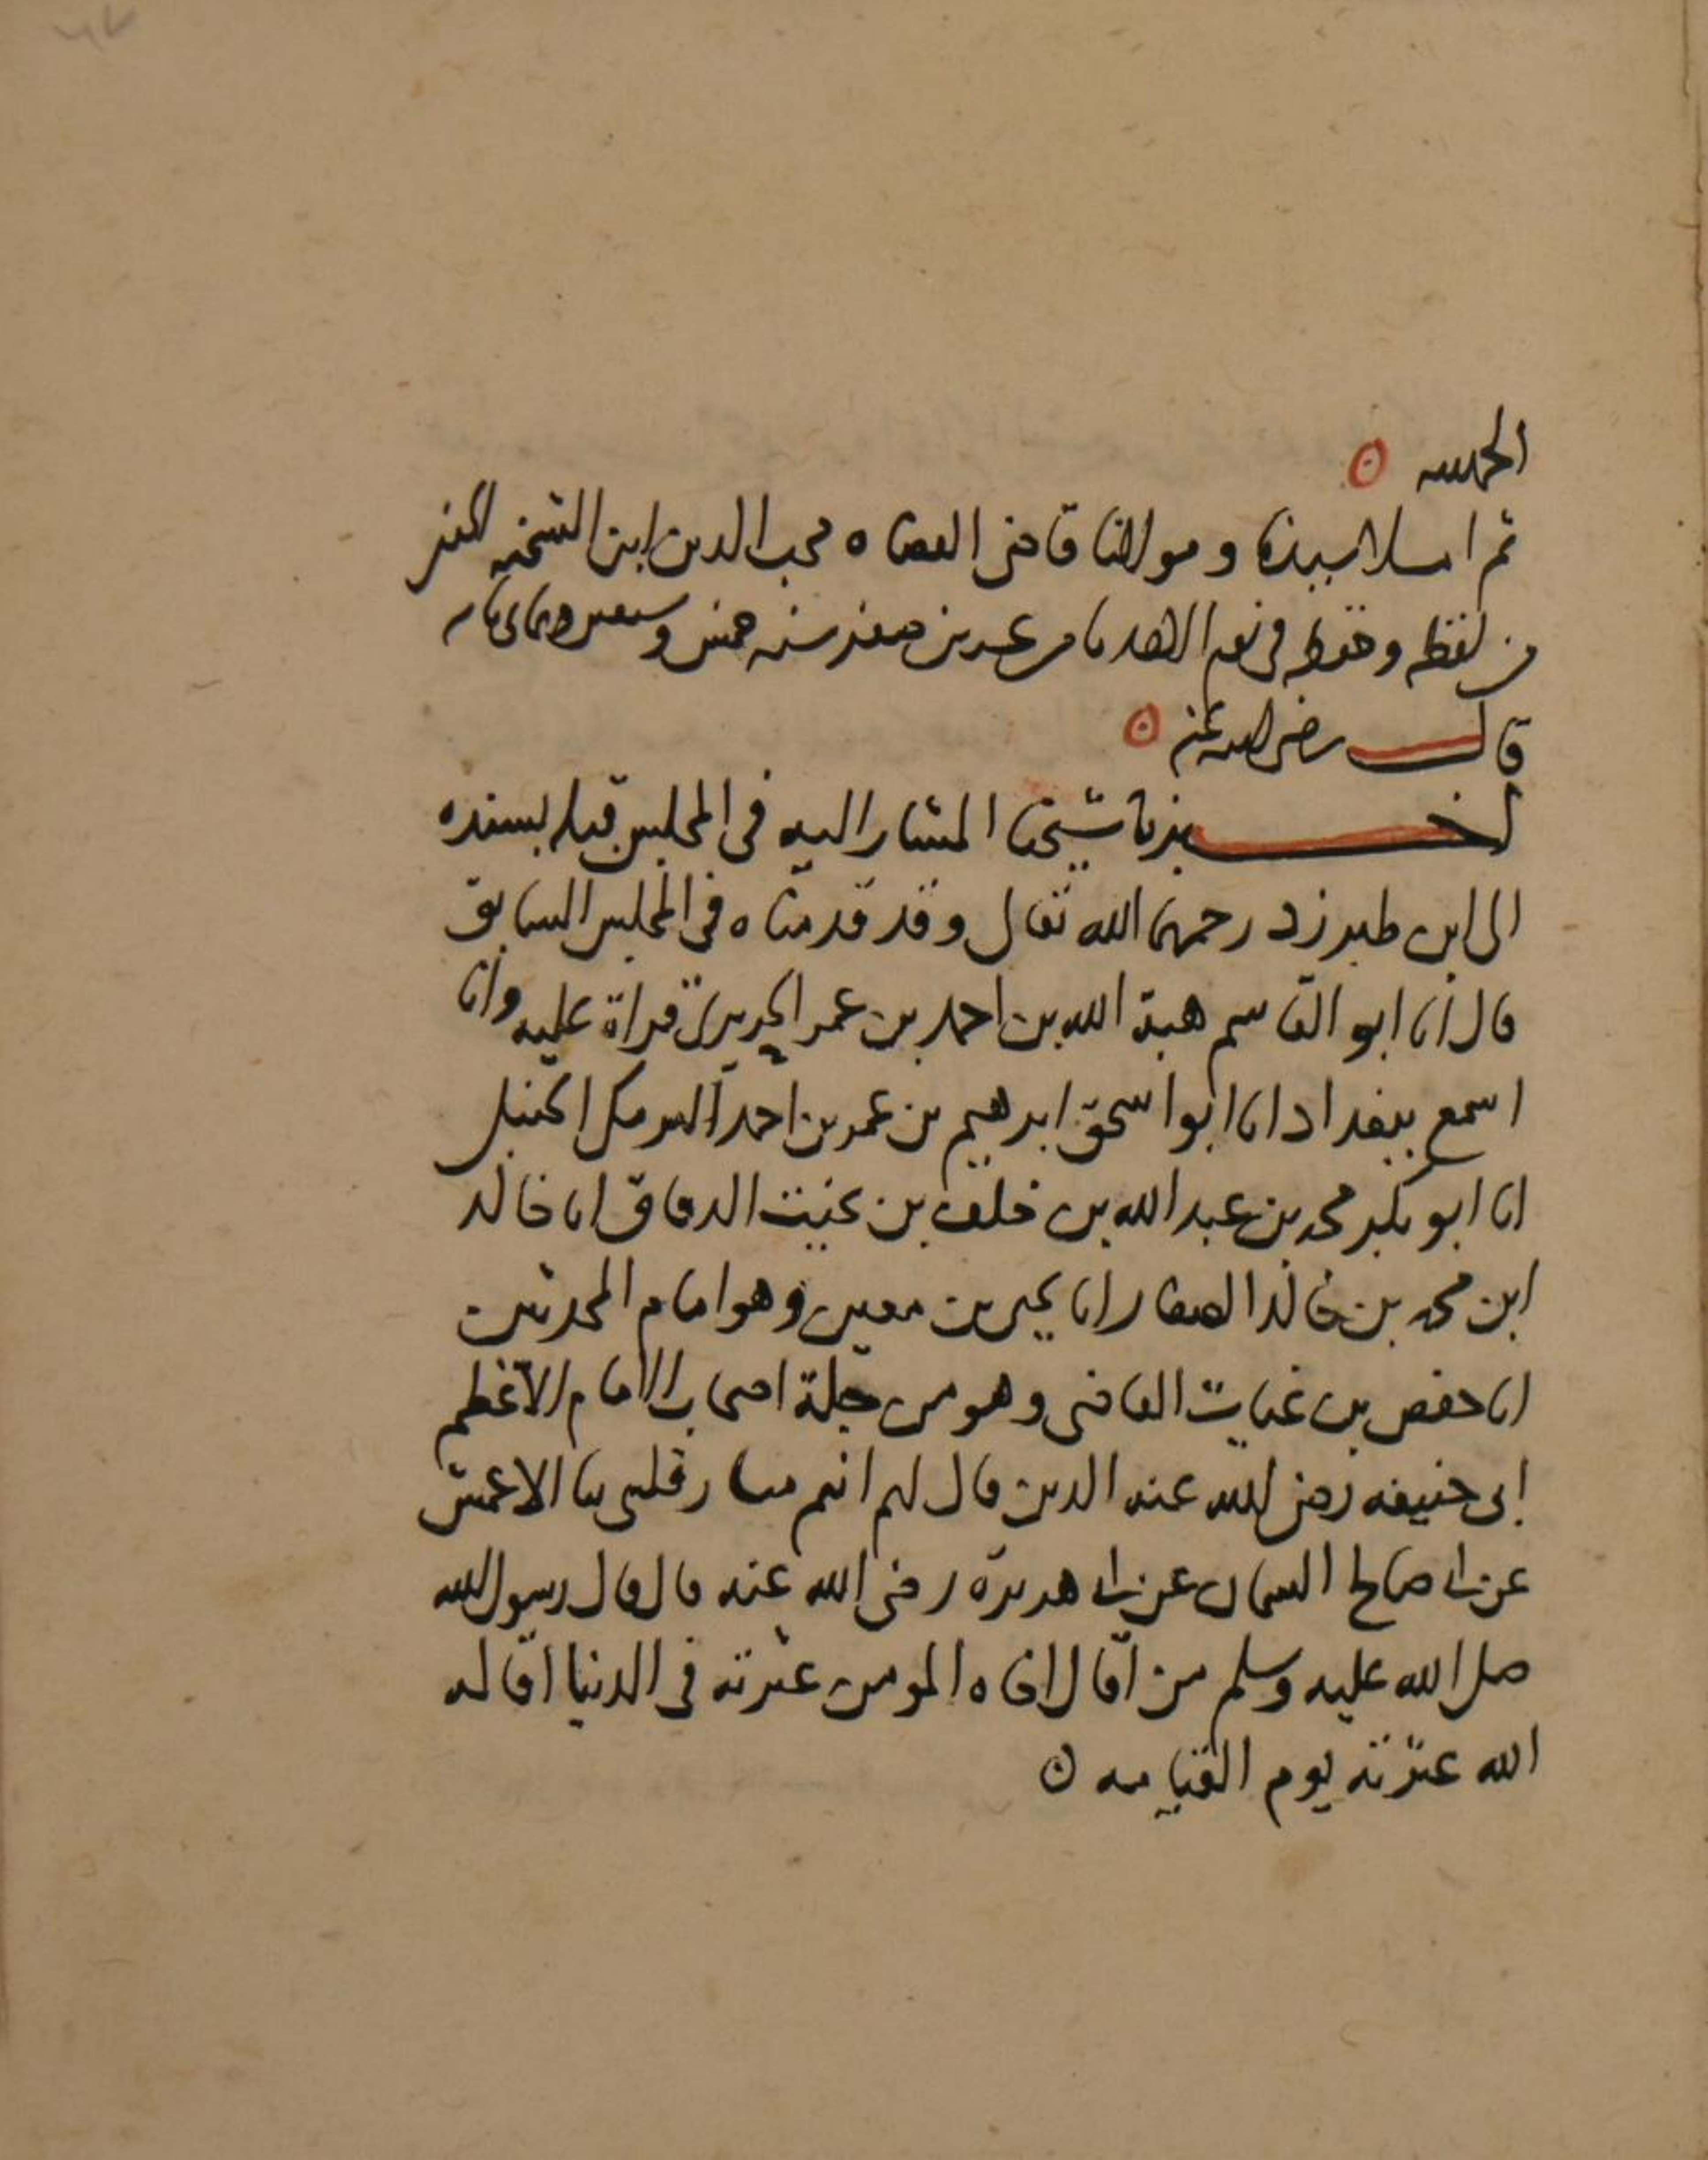 الحمد لله
ثم املا سيدنا ومولانا قاضى القضاه محب الدين ابن الشحنه الحنفى
من لفظه وحفظه فى يوم الاحد ثامن عشرين صفر سنه خمس وسبعين وثمانمايه
قال رضى الله عنه
اخبرنا شيخنا المشار اليه فى المجلس قبله بسنده
الى ابن طبرزد رحمهما الله تعالى وقد قدمناه فى المجلس السابق
قال انا ابو القاسم هبة الله بن احمد بن عمر الحريرى قراة عليه وانا
اسمع ببغداد انا ابو اسحق ابرهيم بن عمر بن احمد البرمكى الحنبلى
انا ابو بكر محمد بن عبد الله بن خلف بن بخيت الدقاق انا خالد
ابن محمد بن خالد الصفار انا يحيى بن معين وهو امام المحدثين
انا حفص بن غياث القاضى وهو من جلة اصحاب الامام الاعظم
ابى حنيفه رضى الله عنه الدين قال لهم انتم مسار قلبى نا الاعمش
عن ابى صالح السمان عن ابى هريرة رضى الله عنه قال قال رسول الله
صلى الله عليه وسلم من اقال اخاه المومن عثرته فى الدنيا اقاله
الله عثرته يوم القيامه